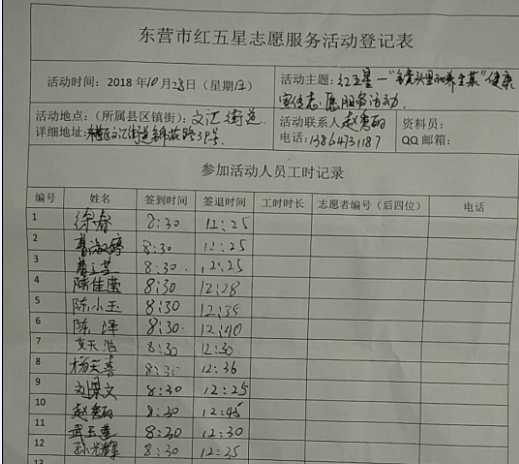 东营市红五星志愿服务活动登记表
活动时间：2018 年10 月28日（星期日）
活动主题：红五星一"镜头里的养生菜"健康
宣传志愿服务活动.
活动地点：（所属县区镇街）：文汇街道
详细地址：文汇街道 路
活动联系人：赵秀丽
电话：13864731187
资料员：
QQ 邮箱：
参加活动人员工时记录
编号 姓名 签到时间 签退时间 工时时长 志愿者编号（后四位） 电话
1 徐春 8:30 12:25
2 淑婷 8:30 12:25
3 8:30 12:25
4 陈佳莹 8:30 12:28
5 陈小玉 8:30 12:35
6 陈 8:30 12:40
7 天浩 8:30 12:30
8 杨笑喜 8:30 12:36
9 刘景文 8:30 12:25
10 赵秀丽 8:20 12:45
11 武玉莲 8:20 12:30
12 孙光辉 8:30 12:25
13